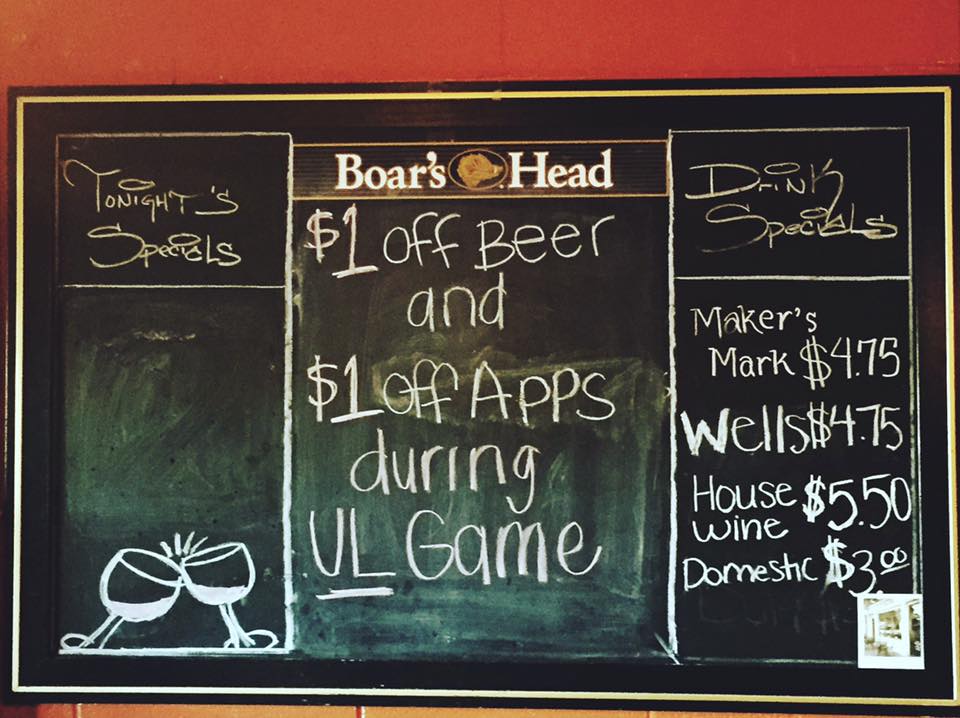 Tonight's
Specials
Boar's Head
$1 off Beer
and
$1 off Apps
during
UL Game
Drink
Specials
Maker's
Mark $4.75
Wells $4.75
House $5.50
wine
Domestic $3.00